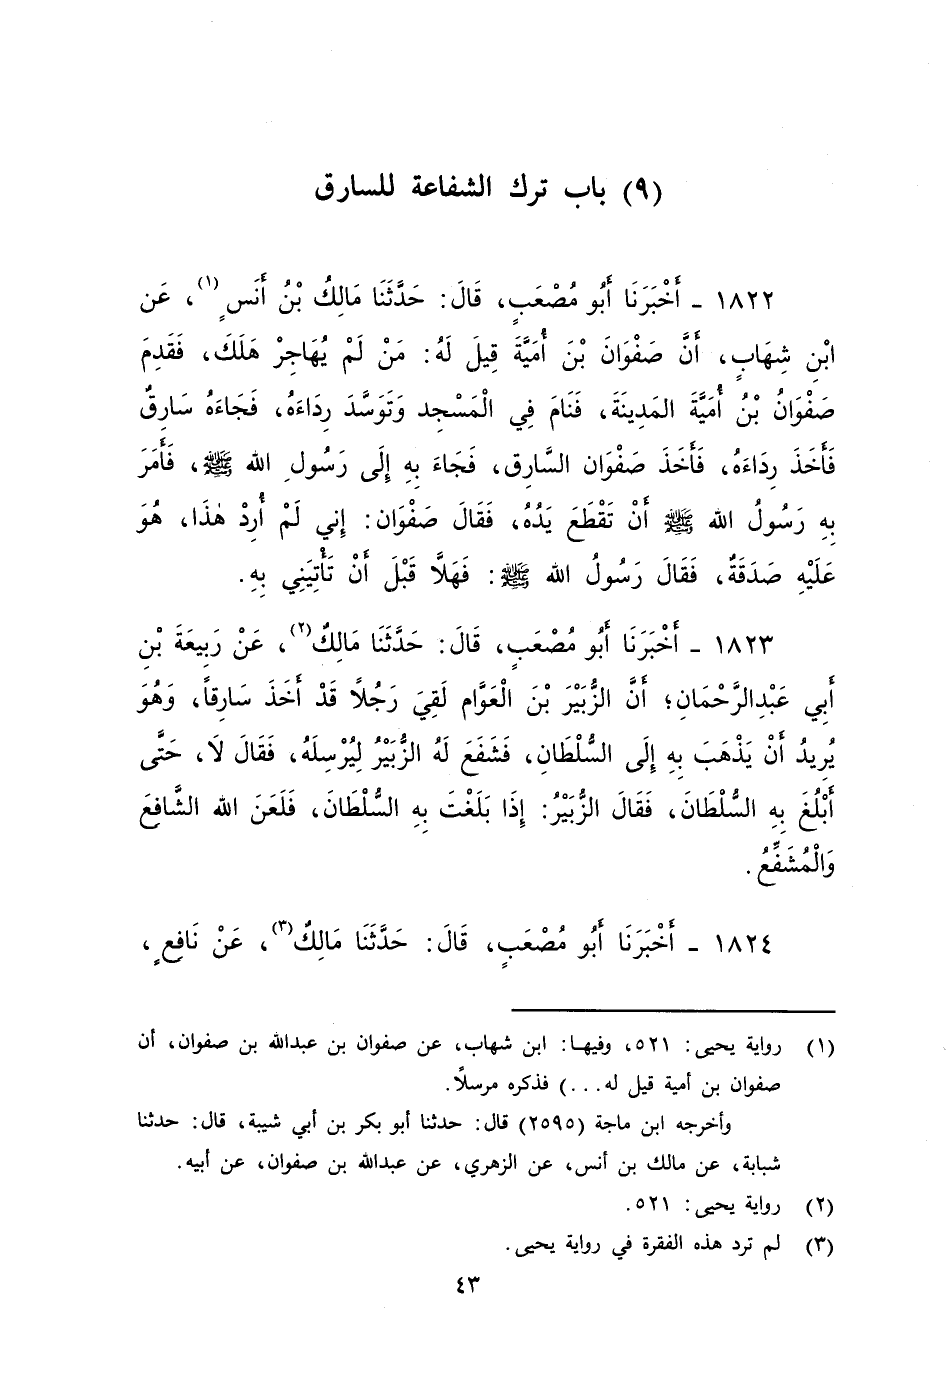 (٩) باب ترك الشفاعة للسارق
١٨٢٢ ـ أَخْبَرَنَا أَبُو مُصْعَبٍ، قَالَ: حَدَّثَنَا مَالِكُ بْنُ أَنَسٍ(١)، عَن
ابْنِ شِهَابٍ، أَنَّ صَفْوَانَ بْنَ أُمَيَّةَ قِيلَ لَهُ: مَنْ لَمْ يُهَاجِرْ هَلَكَ، فَقَدِمَ
صَفْوَانُ بْنُ أُمَيَّةَ المَدِينَةَ، فَنَامَ فِي الْمَسْجِد وَتَوَسَّدَ رِدَاءَهُ، فَجَاءَهُ سَارِقٌ
فَأَخَذَ رِدَاءَهُ، فَأَخَذَ صَفْوَان السَّارِق، فَجَاءَ بِهِ إِلَى رَسُولِ الله ﷺ، فَأَمَرَ
بِهِ رَسُولُ الله ﷺ أَنْ تَقْطَعَ يَدُهُ، فَقَالَ صَفْوَان: إِني لَمْ أُرِدْ هٰذَا، هُوَ
عَلَيْهِ صَدَقَةٌ، فَقَالَ رَسُولُ الله ﷺ: فَهَلَّا قَبْلَ أَنْ تَأْتِيَنِي بِهِ.
١٨٢٣ ـ أَخْبَرَنَا أَبُو مُصْعَبٍ، قَالَ: حَدَّثَنَا مَالِكٌ(٢)، عَنْ رَبِيعَةَ بْنِ
أَبِي عَبْدِالرَّحْمَانِ؛ أَنَّ الزُّبَيْرَ بْنَ الْعَوَّامِ لَقِيَ رَجُلًا قَدْ أَخَذَ سَارِقاً، وَهُوَ
يُرِيدُ أَنْ يَذْهَبَ بِهِ إِلَى السُّلْطَانِ، فَشَفَعَ لَهُ الزُّبَيْرُ لِيُرْسِلَهُ، فَقَالَ لَا، حَتَّى
أَبْلُغَ بِهِ السُّلْطَانَ، فَقَالَ الزُّبَيْرُ: إِذَا بَلَغْتَ بِهِ السُّلْطَانَ، فَلَعَنَ الله الشَّافِعَ
وَالْمُشَفِّعُ.
١٨٢٤ ـ أَخْبَرَنَا أَبُو مُصْعَبٍ، قَالَ: حَدَّثَنَا مَالِكٌ(٣)، عَنْ نَافِعٍ،
(١) رواية يحيى: ٥٢١، وفيها: ابن شهاب، عن صفوان بن عبدالله بن صفوان، أن
صفوان بن أمية قيل له...) فذكره مرسلًا.
وأخرجه ابن ماجة (٢٥٩٥) قال: حدثنا أبو بكر بن أبي شيبة، قال: حدثنا
شبابة، عن مالك بن أنس، عن الزهري، عن عبدالله بن صفوان، عن أبيه.
(٢) رواية يحيى: ٥٢١.
(٣) لم ترد هذه الفقرة في رواية يحيى.
٤٣